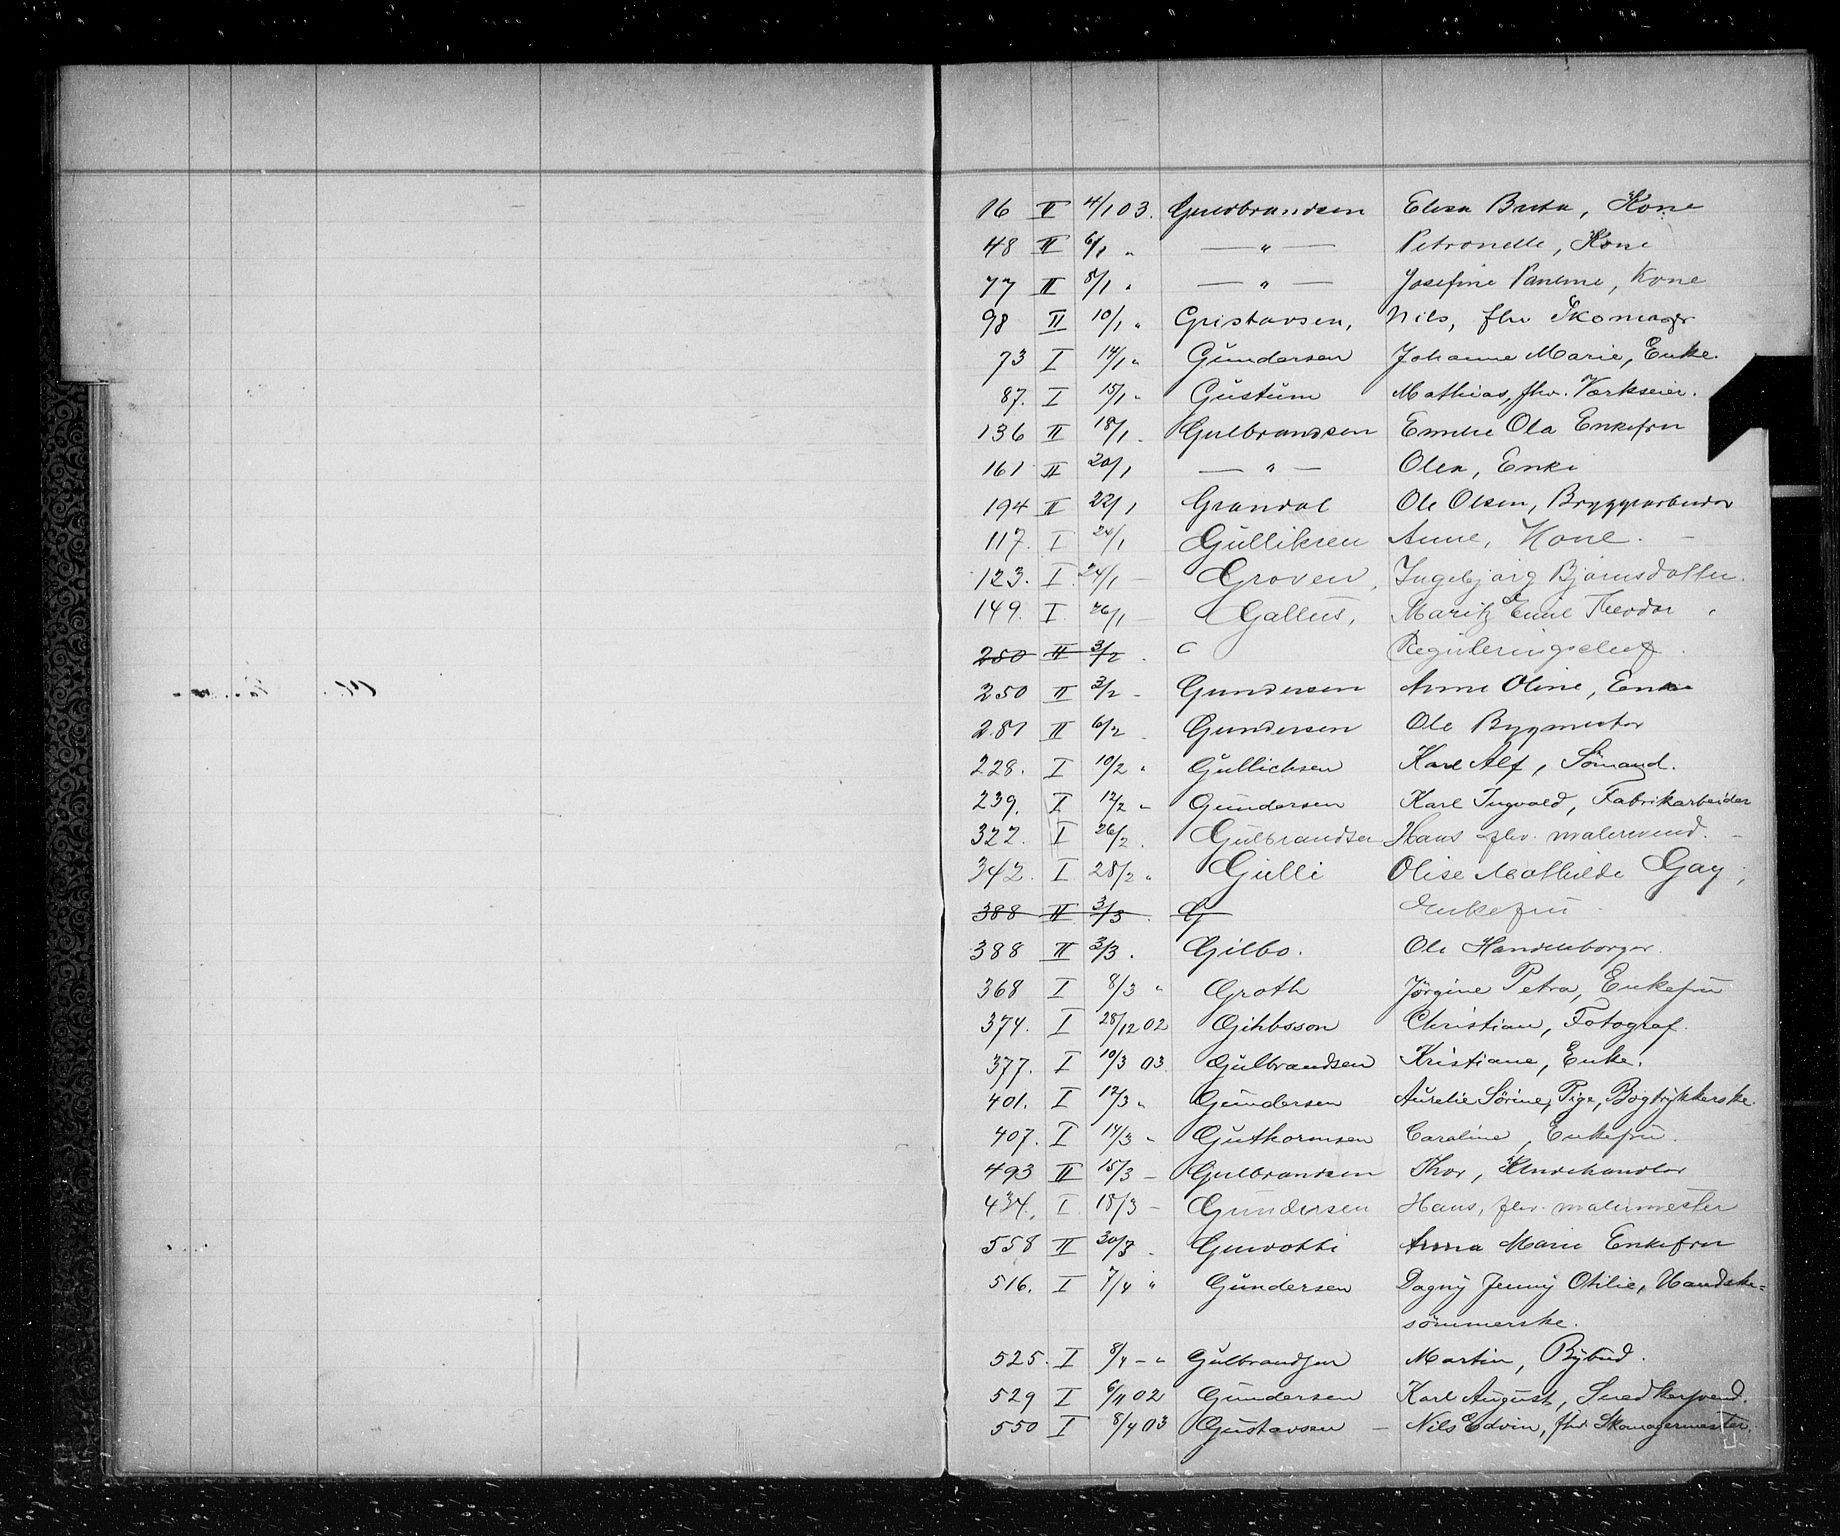 16 II 4/1 03. Guldbrandsen Elisa Berta, Kone
48 II 6/1 " — " — Petronelle, Kone
77 II 8/1 " — " — Josefine Pauline, Kone
98 II 10/1 " Gustavsen, Nils, fhv Skomager
73 I 14/1 " Gundersen Johanne Marie, Enke.
87. I 15/1 " Gustum Mathias, fhv. Værkseier.
136 II 18/1 . Gulbrandsen Emelie Ola Enkefru
161 II 20/1 — " — Olea, Enke
194 II 22/1 Grandal Ole Olsen, Bryggearbeider
117. I 24/1 Gulliksen Anne, Kone. —
123. I 24/1 — Groven, Ingebjørg Bjørnsdatter.
149. I 26/1 — Gallus, Moritz Emil Teodor,
250 II 3/2 . G Reguleringschef.
250 II 3/2 - Gundersen Anne Oline, Enke
281 II 6/2 . Gundersen Ole Bygmester
228. I 10/2 " Gullichsen Karl Alf, Sømand.
239. I 12/2 " Gundersen Karl Ingvald, Fabrikarbeider
322. I 26/2 . Gulbrandsen Hans fhv. malersvend. —
342. I 28/2 " Gulli Olise Mathilde Gay,
388 II 3/3 . G Enkefru.
388 II 3/3 . Gilbo. Ole Handelsborger.
368 I 8/3 " Groth Jørgine Petra, Enkefru
374. I 28/12 02 Gihbsson Christian, Fotograf.
377. I 10/3 03. Gulbrandsen Kristiane, Enke.
401. I 12/3 " Gundersen Aurelie Sørine, Pige, Bogtrykkerske.
407. I 14/3 " Guthormsen Caroline, Enkefru.
493 II 15/3 — Gulbrandsen Thor, Klædehandler
434. I 18/3 — Gundersen Hans, fhv. malermester
558 II 30/3 . Anna Marie Enkefru
516. I 7/4 " Gundersen Dagny Jenny Otilie, Handske=
sømmerske.
525. I 8/4 — " Gulbrandsen Martin, Bybud.
529 I 6/11 02 Gundersen Karl August, Snedkersvend.
550 I 8/4 03 Gustavsen — Nils Edvin, fhv Skomagermester.